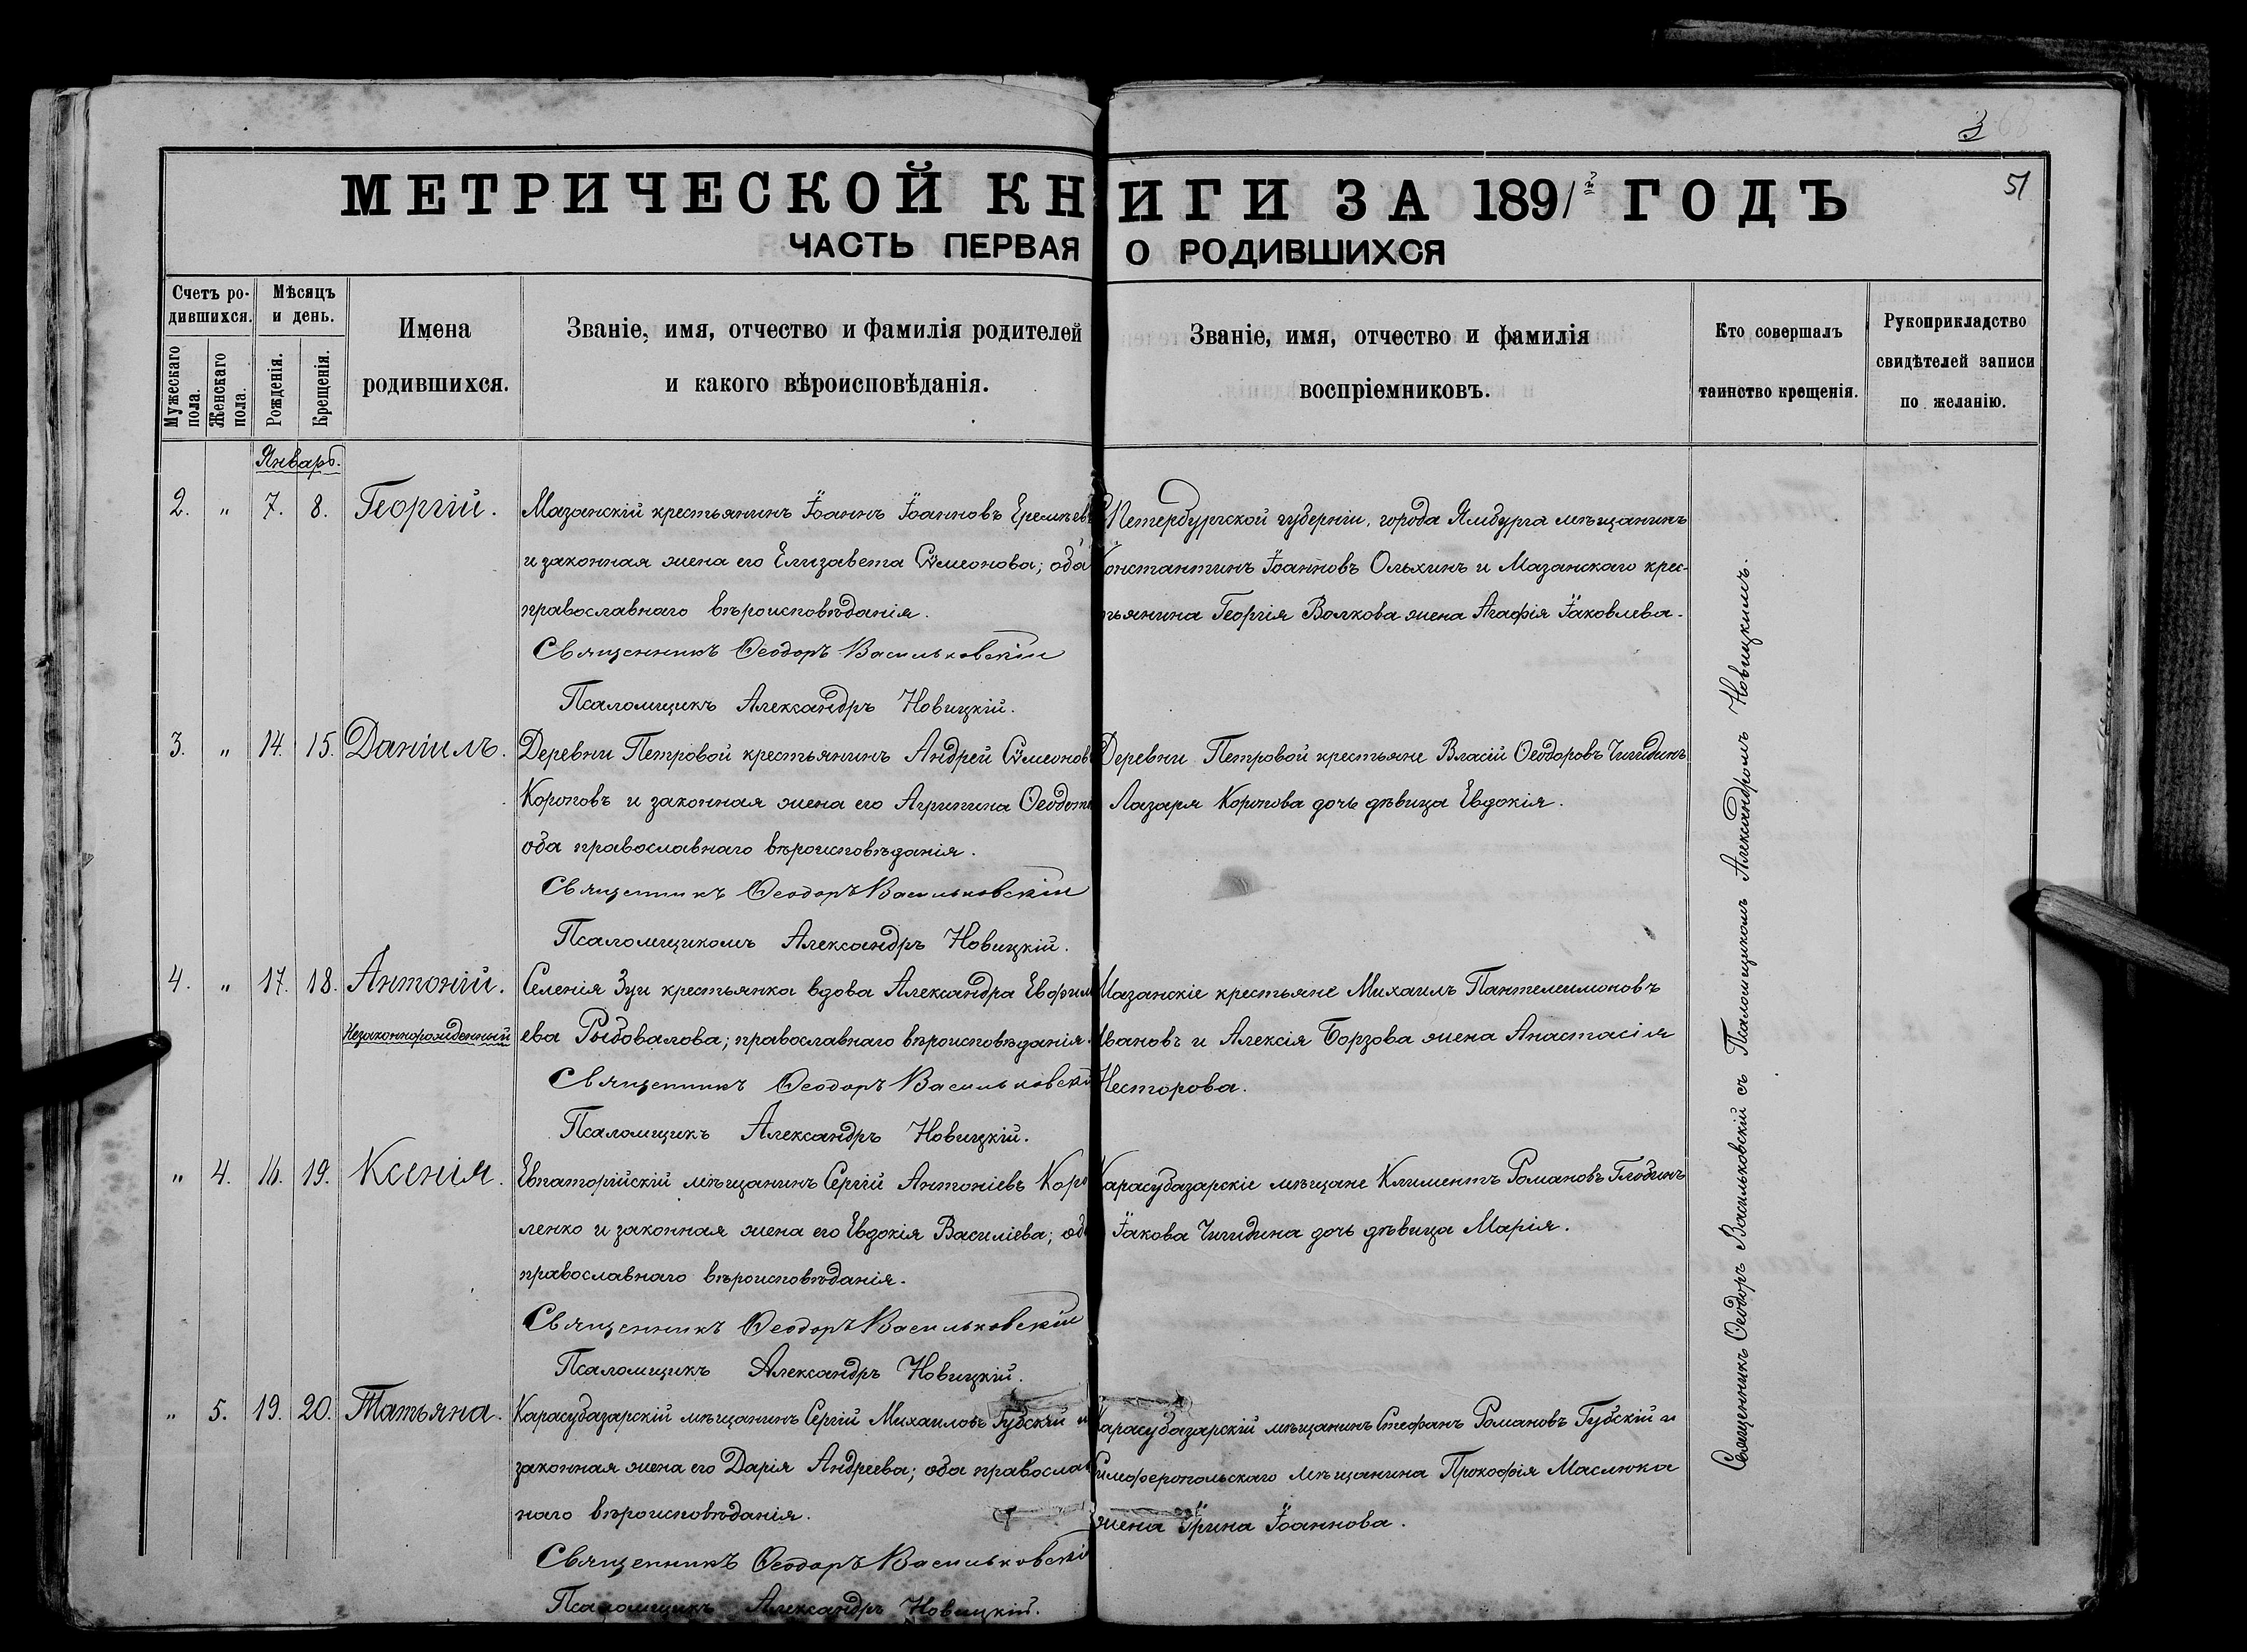 3
51
МЕТРИЧЕСКОЙ КНИГИ ЗА 1891й ГОДЪ
ЧАСТЬ ПЕРВАЯ О РОДИВШИХСЯ
Счетъ родившихся.
Мужескаго пола.
Женскаго пола.
Мѣсяцъ и день.
Рожденія.
Крещенія.
Имена
родившихся.
Званіе, имя, отчество и фамилія родителей
и какого вѣроисповѣданія.
Званіе, имя, отчество и фамилія
воспріемниковъ.
Кто совершалъ
таинство крещенія.
Рукоприкладство
свидѣтелей записи
по желанію.
Январь.
2. " 7. 8. Георгій.
Мазанскій крестьянинъ Іоаннъ Іоанновъ Еремѣев
и законная жена его Елизавета Сѵмеонова; оба
православнаго вѣроисповѣданія.
Священникъ Ѳеодоръ Васильковскій
Псаломщикъ Александръ Новицкій.
СПетербургской губерніи, города Ямбурга мѣщанинъ
Константинъ Іоанновъ Ольхинъ и Мазанскаго крес-
тьянина Георгія Волкова жена Агафія Іаковлева.
3. " 14. 15. Даніилъ.
Деревни Петровой крестьянинъ Андрей Сѵмеонов
Короповъ и законная жена его Агрипина Ѳеодот
оба православнаго вѣроисповѣданія.
Священникъ Ѳеодоръ Васильковскій
Псаломщикомъ Александръ Новицкій.
Деревни Петровой крестьяне Власій Ѳеодоровъ Чигидинъ
Лазаря Коропова дочь дѣвица Евдокія.
4. " 17. 18. Антоній.
Незаконнорожденный
Селенія Зуи крестьянка вдова Александра Евфим
ева Рыбовалова; православнаго вѣроисповѣданія.
Священникъ Ѳеодоръ Васильковскі
Псаломщикъ Александръ Новицкій.
Мазанскіе крестьяне Михаилъ Пантелеимоновъ
Ивановъ и Алексія Борзова жена Анастасія
Несторова.
" 4. 16. 19. Ксенія.
Евпаторійскій мѣщанинъ Сергій Антоніевъ Коро
ленко и законная жена его Евдокія Василіева; об
православнаго вѣроисповѣданія.
Священникъ Ѳеодоръ Васильковскій
Псаломщикъ Александръ Новицкій.
Карасубазарскіе мѣщане Климентъ Романовъ Глобинъ
Іакова Чигидина дочь дѣвица Марія.
" 5. 19. 20. Татьяна.
Карасубазарскій мѣщанинъ Сергій Михаиловъ Губскій и
законная жена его Дарія Андреева; оба православ
наго вѣроисповѣданія.
Священникъ Ѳеодоръ Васильковскі
Псаломщикъ Александръ Новицкій.
Карасубазарскій мѣщанинъ Стефанъ Романовъ Губскій и
Симферопольскаго мѣщанина Прокофія Маслюка
жена Ірина Іоаннова.
Священникъ Ѳеодоръ Васильковскій съ Псаломщикомъ Александромъ Новицкимъ.